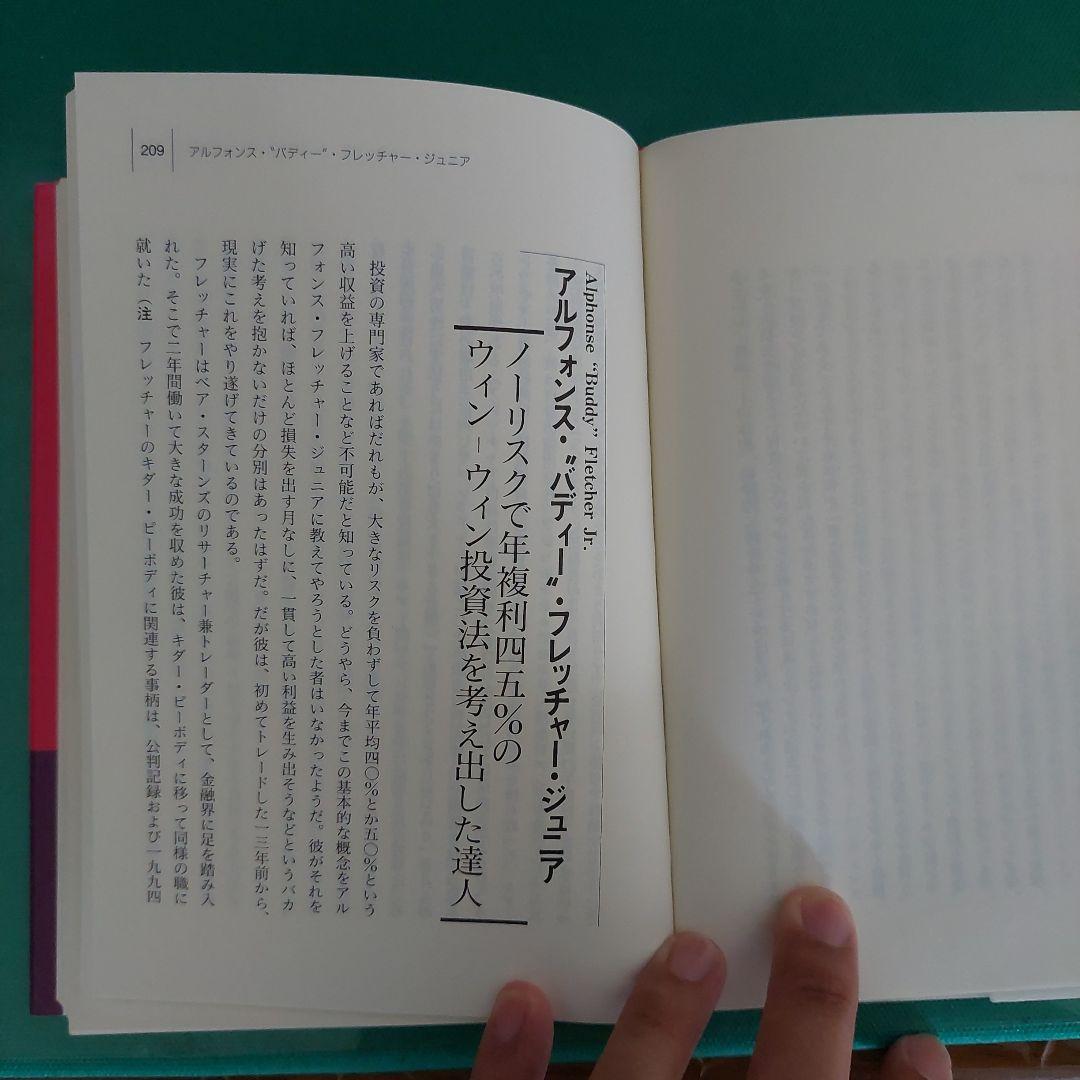 209
アルフォンス・“バディー”・フレッチャー・ジュニア
Alphonse “Buddy” Fletcher Jr.
アルフォンス・“バディー”・フレッチャー・ジュニア
ノーリスクで年複利四五％の
ウィン－ウィン投資法を考え出した達人
投資の専門家であればだれもが、大きなリスクを負わずして年平均四〇％とか五〇％という
高い収益を上げることなど不可能だと知っている。どうやら、今までこの基本的な概念をアル
フォンス・フレッチャー・ジュニアに教えてやろうとした者はいなかったようだ。彼がそれを
知っていれば、ほとんど損失を出す月なしに、一貫して高い利益を生み出そうなどというバカ
げた考えを抱かないだけの分別はあったはずだ。だが彼は、初めてトレードした一三年前から、
現実にこれをやり遂げてきているのである。
フレッチャーはベア・スターンズのリサーチャー兼トレーダーとして、金融界に足を踏み入
れた。そこで二年間働いて大きな成功を収めた彼は、キダー・ピーボディに移って同様の職に
就いた（注　フレッチャーのキダー・ピーボディに関連する事柄は、公判記録および一九九四